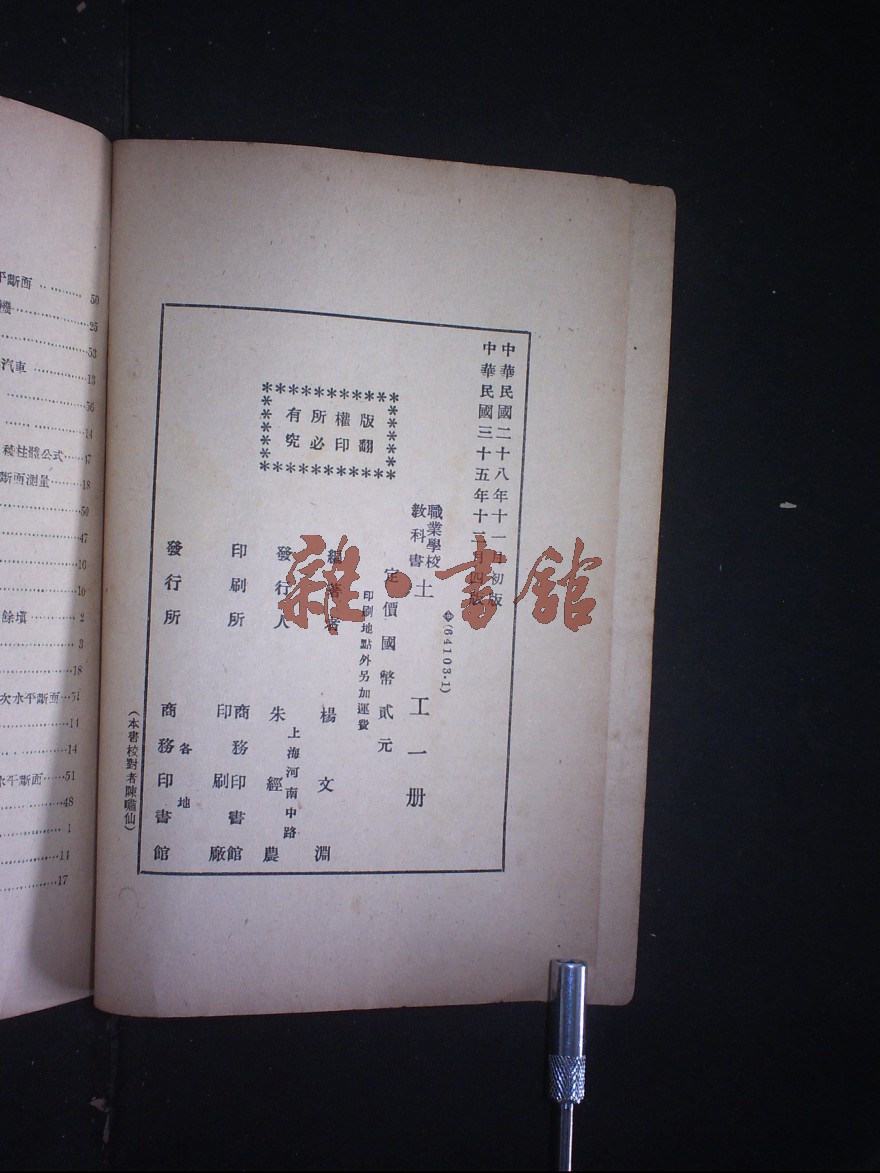 中華民國二十八年十一月初版
中華民國三十五年十二月四版
(64103·1)
職業學校
教科書
土工一册
定價國幣貳元
印刷地點外另加運費
版權所有
翻印必究
編著者 楊文淵
發行人 朱經農
上海河南中路
印刷所 商務印書館
印刷廠
發行所 商務印書館
各地
(本書校對者陳嘯仙)
雜·書館
平斷面 50
機 25
53
汽車 13
56
14
稜柱體公式 47
斷面測量 18
50
47
16
10
餘填 2
3
18
次水平斷面 51
14
14
水平斷面 51
48
1
14
17